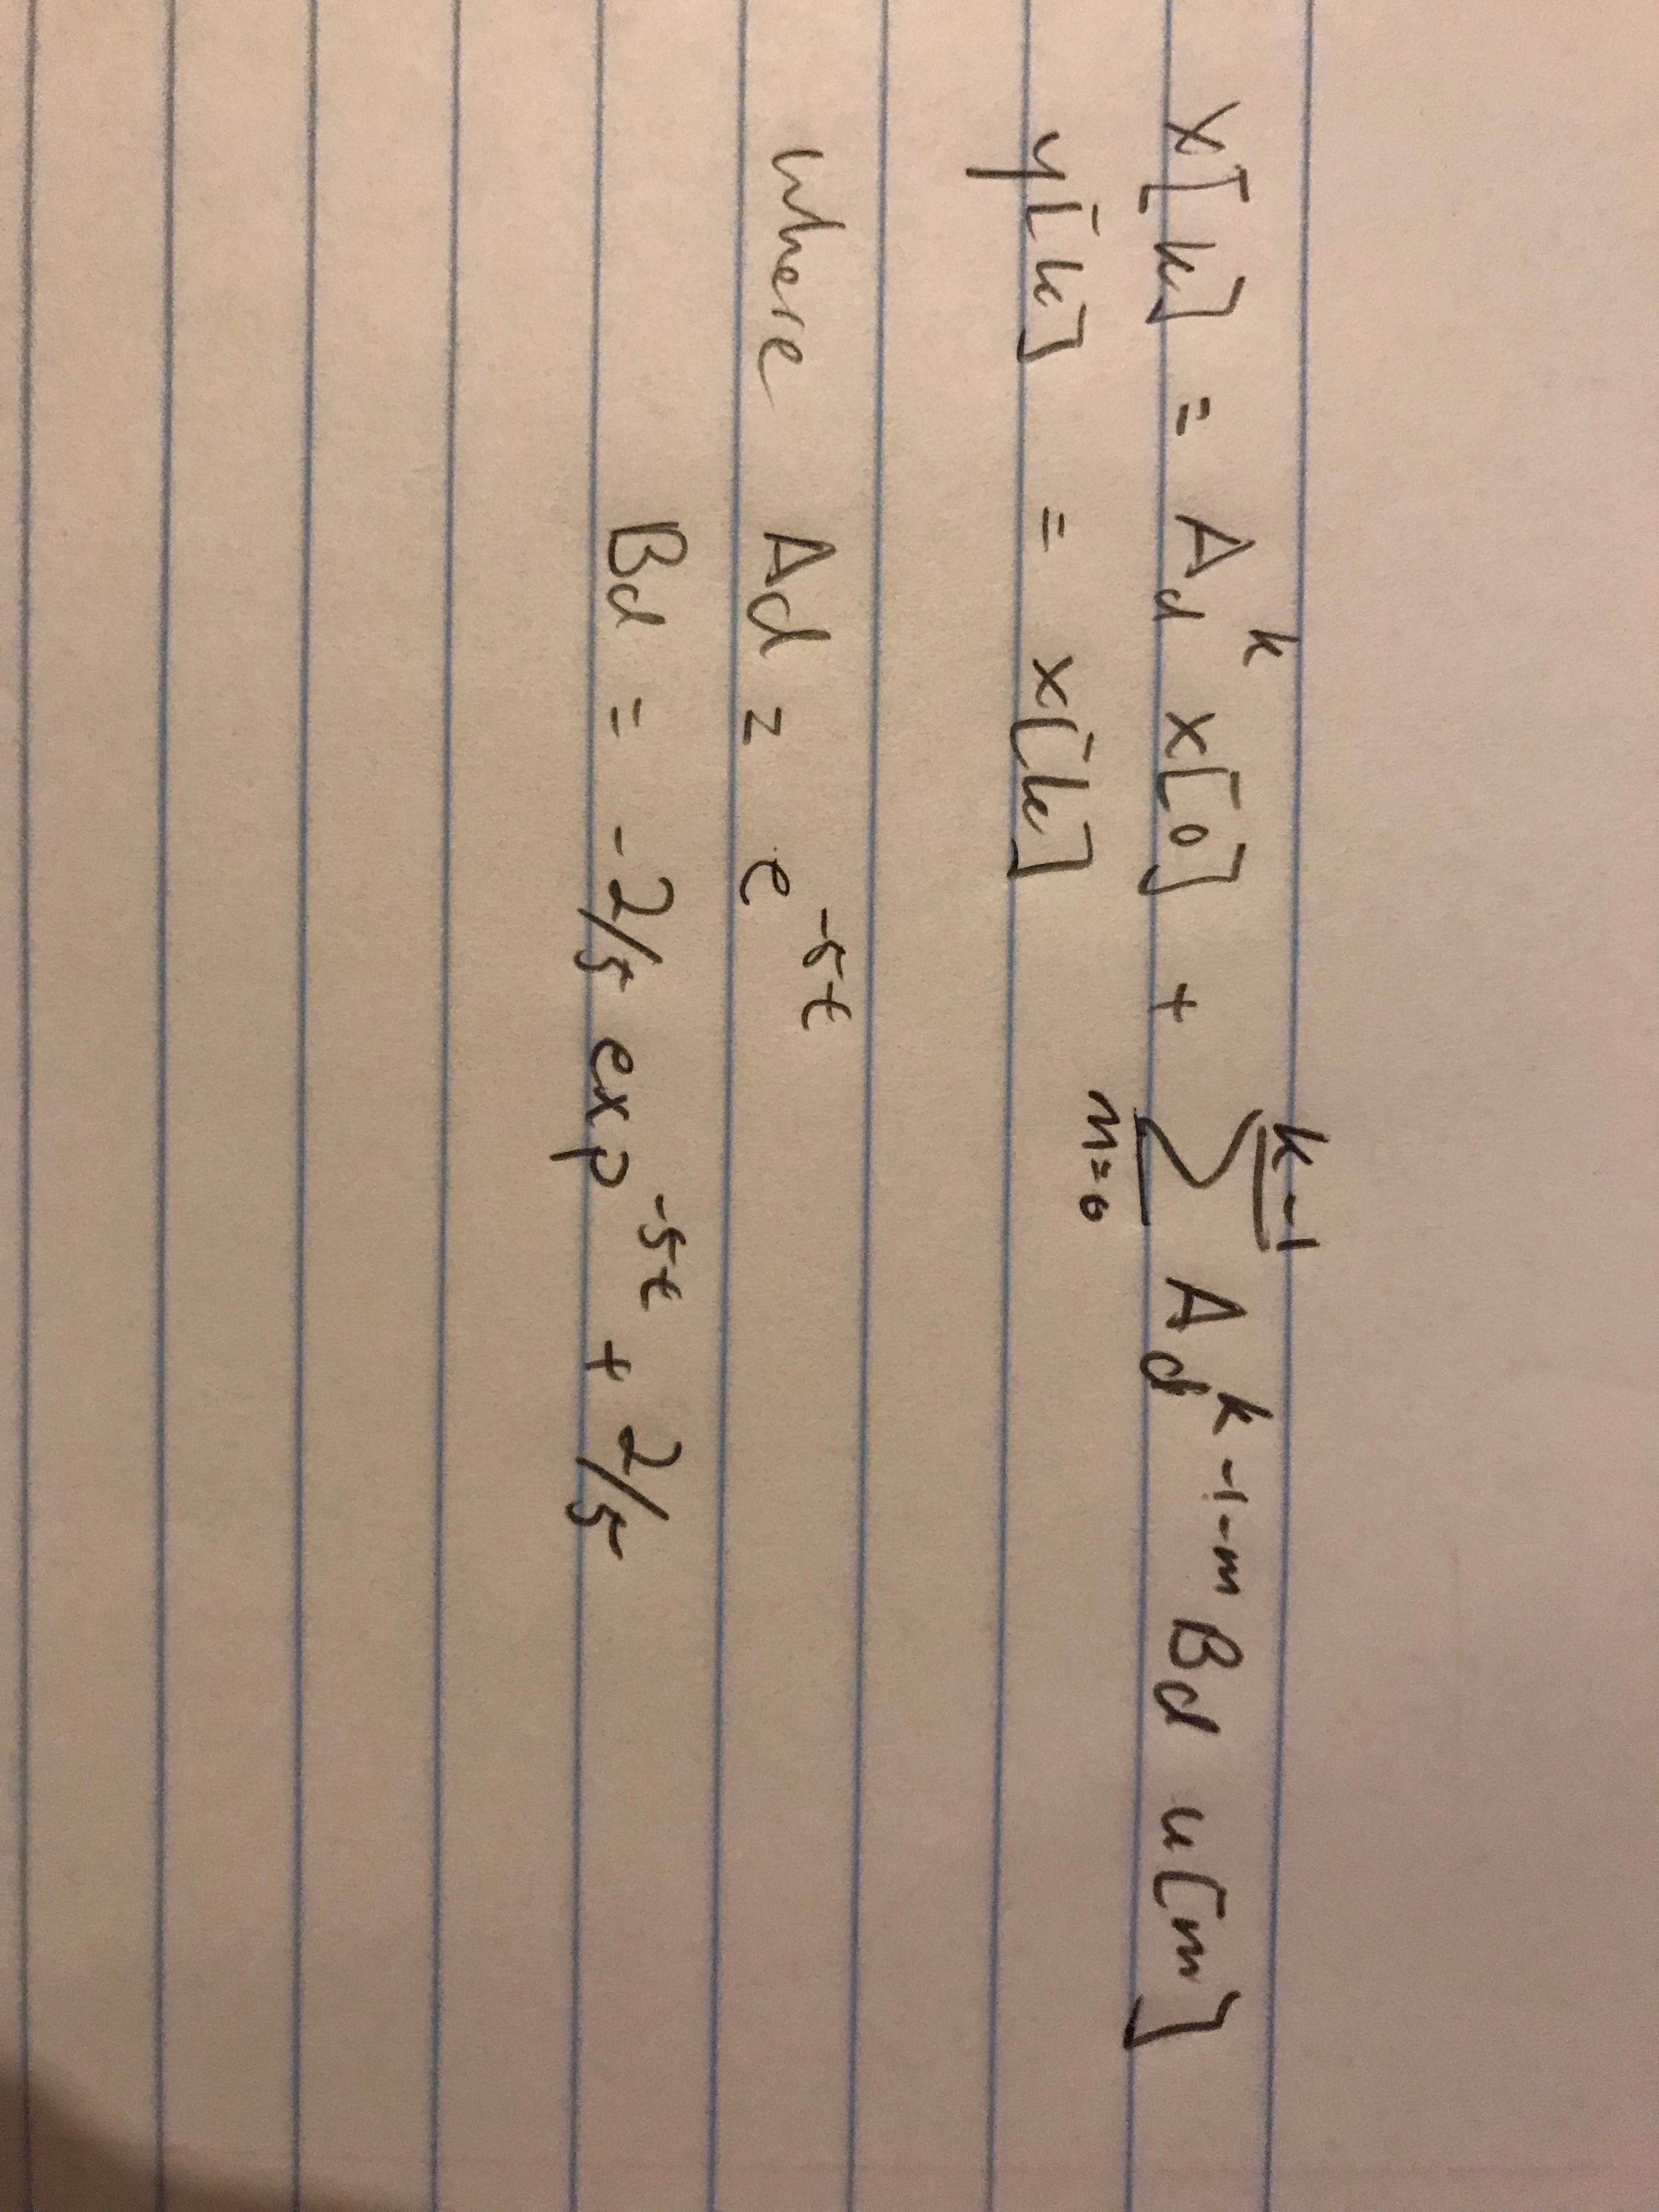 x[k] = A_d^k x[0] + \sum_{m=0}^{k-1} A_d^{k-1-m} B_d u[m]
y[k] = x[k]
where Ad = e^{-5t}
Bd = -2/5 exp^{-5t} + 2/5